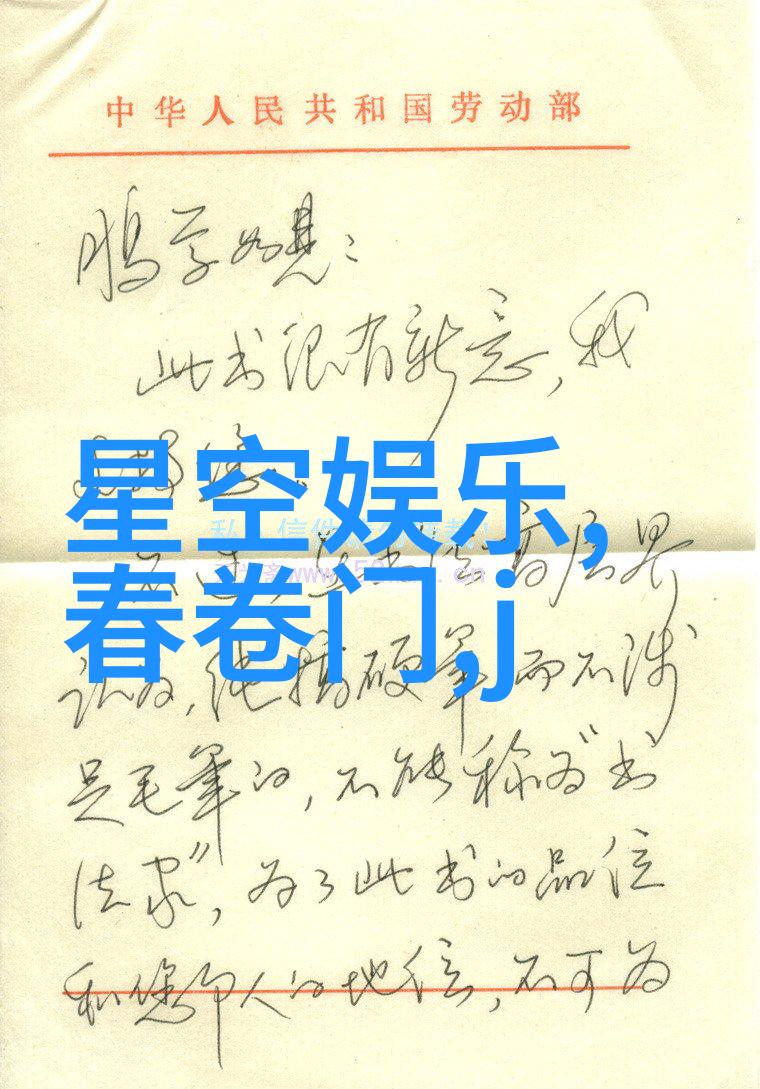 中华人民共和国劳动部
鹏学如晤：
此书很有新意，我
星空娱乐,
春卷门,j
认为，纯搞硬笔而不涉
足毛笔的，不能称为“书
法家”，为了此书的品位
和您个人的地位，不可为